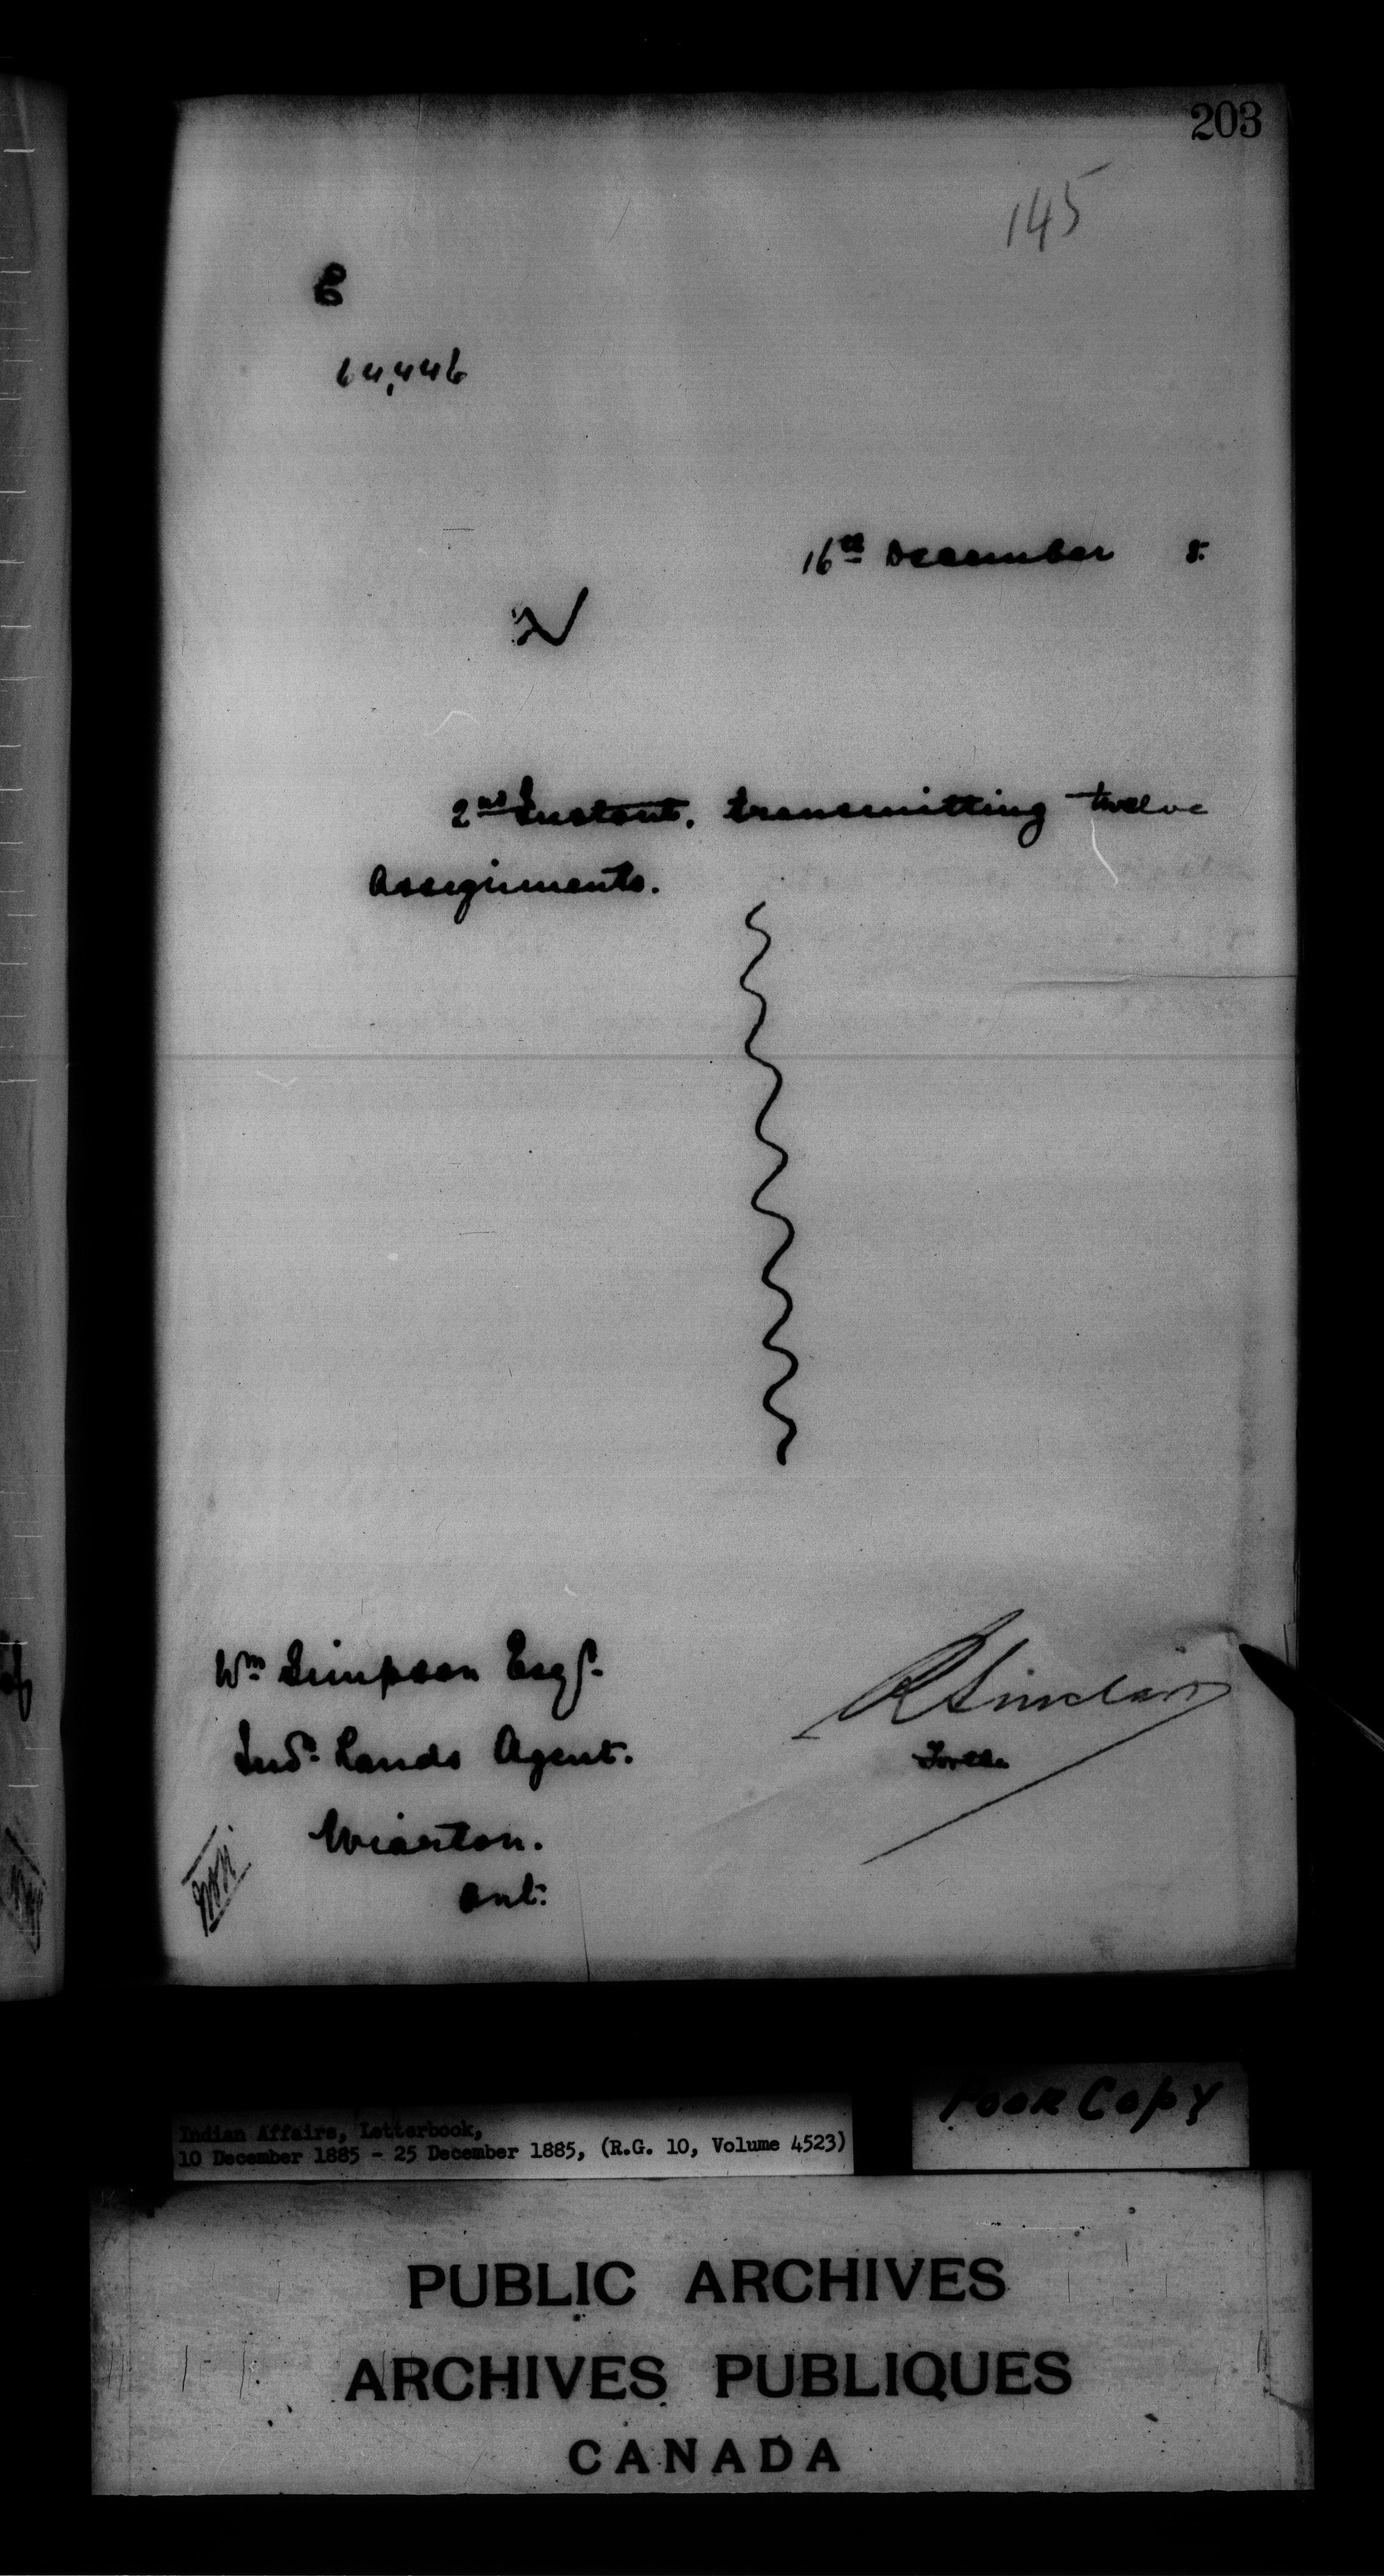 203
145
64,446
16th December 5.
2nd Instant. transmitting twelve
Assignments.
Wm Simpson Esqr.
Ind. Lands Agent.
Wiarton.
Ont.
R Sinclair
Indian Affairs, Letterbook,
10 December 1885 - 25 December 1885, (R.G. 10, Volume 4523)
Poor Copy
PUBLIC ARCHIVES
ARCHIVES PUBLIQUES
CANADA